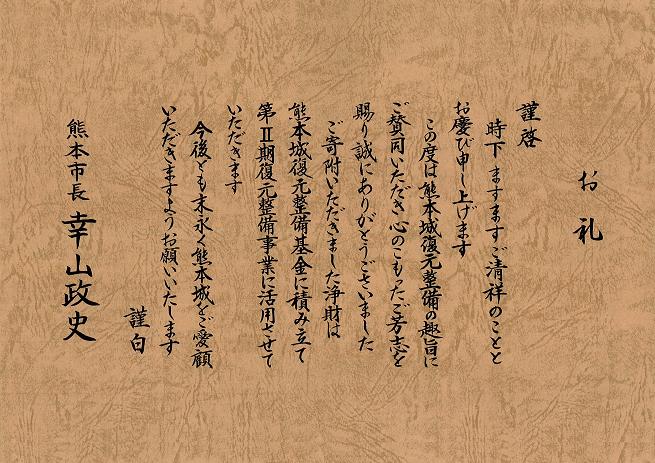 お礼
謹啓
時下ますますご清祥のことと
お慶び申し上げます
この度は熊本城復元整備の趣旨に
ご賛同いただき心のこもったご芳志を
賜り誠にありがとうございました
ご寄附いただきました浄財は
熊本城復元整備基金に積み立て
第Ⅱ期復元整備事業に活用させて
いただきます
今後とも末永く熊本城をご愛顧
いただきますようお願いいたします
謹白
熊本市長 幸山政史